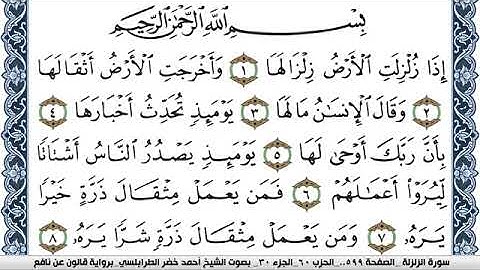 بِسْمِ اللَّهِ الرَّحْمَٰنِ الرَّحِيمِ
إِذَا زُلْزِلَتِ الْأَرْضُ زِلْزَالَهَا ١ وَأَخْرَجَتِ الْأَرْضُ أَثْقَالَهَا
٢ وَقَالَ الْإِنسَانُ مَا لَهَا ٣ يَوْمَئِذٍ تُحَدِّثُ أَخْبَارَهَا ٤
بِأَنَّ رَبَّكَ أَوْحَىٰ لَهَا ٥ يَوْمَئِذٍ يَصْدُرُ النَّاسُ أَشْتَاتًا
لِّيُرَوْا أَعْمَالَهُمْ ٦ فَمَن يَعْمَلْ مِثْقَالَ ذَرَّةٍ خَيْرًا
يَرَهُ ٧ وَمَن يَعْمَلْ مِثْقَالَ ذَرَّةٍ شَرًّا يَرَهُ ٨
سورة الزلزلة_ الصفحة ٥٩٩_ الحزب ٦٠_ الجزء ٣٠_ بصوت الشيخ أحمد خضر الطرابلسي_ برواية قالون عن نافع